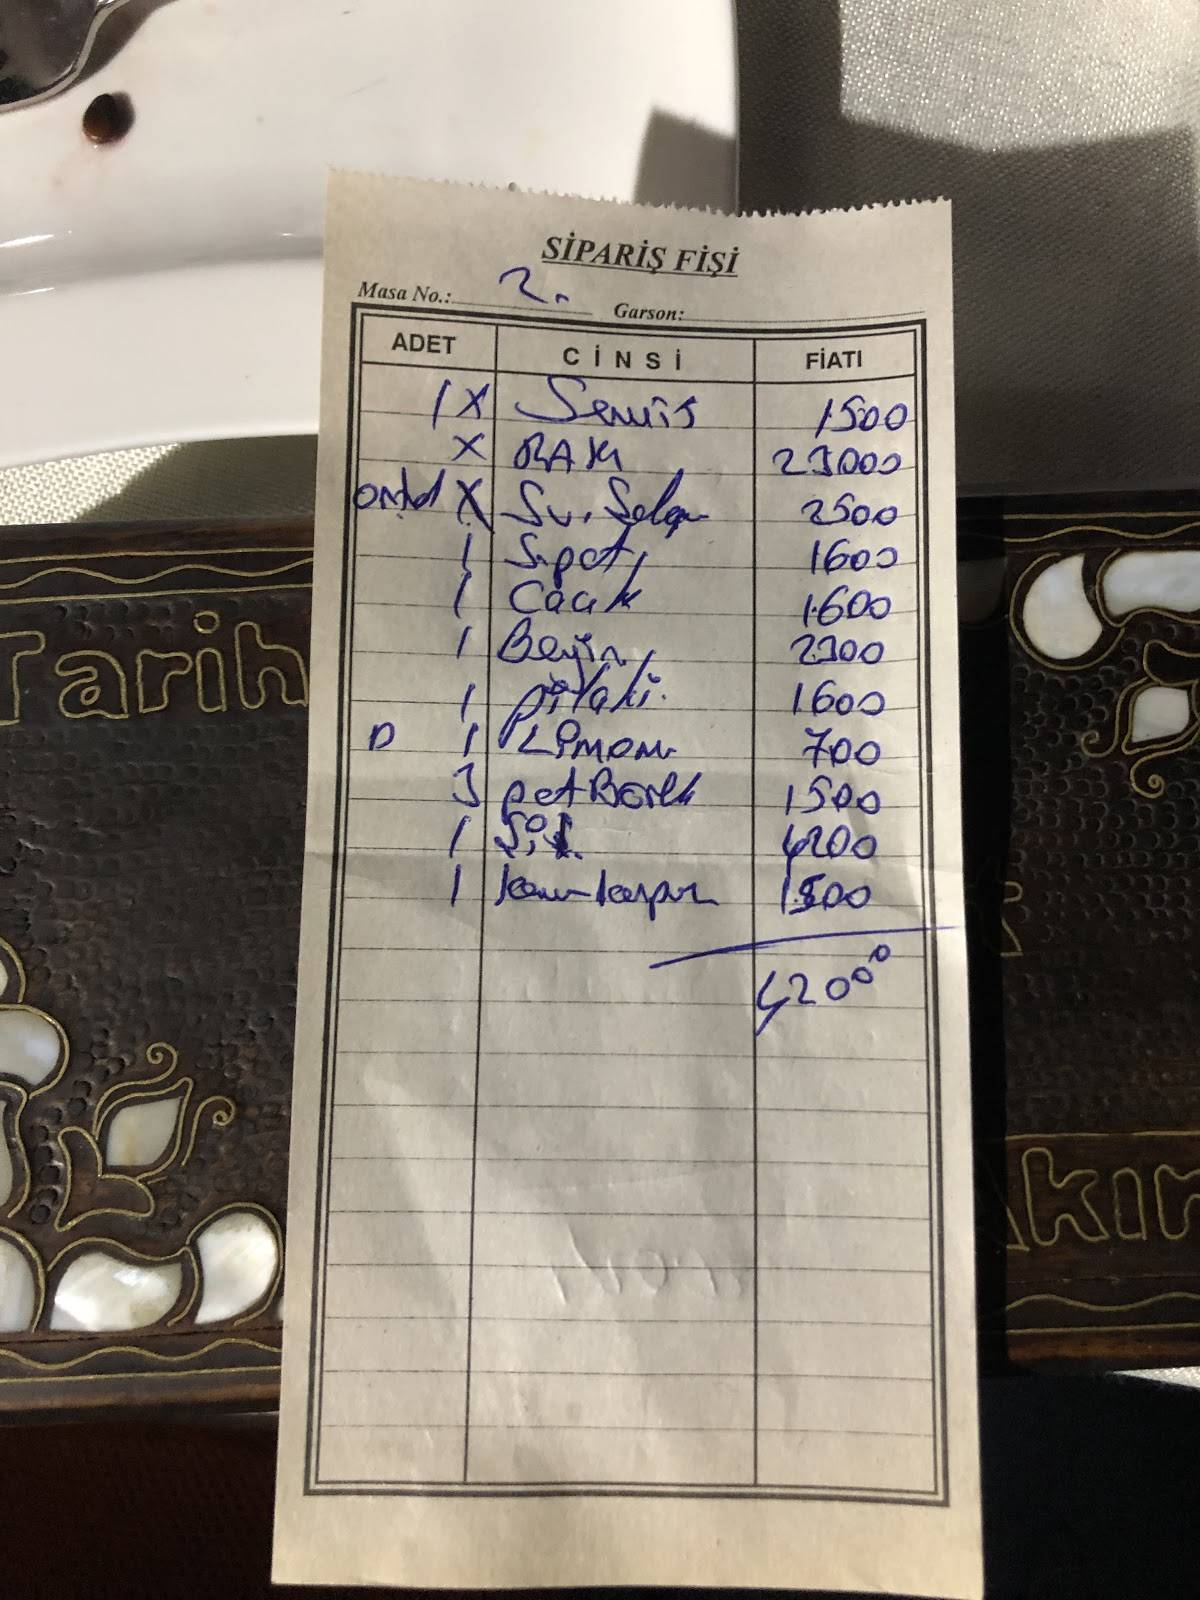 SİPARİŞ FİŞİ
Masa No.: 2. Garson:
ADET CİNSİ FİATI
1 X Servis 1500
X RAKI 23000
X Su. Şalgam 2500
1 1600
1 Cacık 1600
1 Beyin 2300
1 pilaki 1600
D 1 Limon 700
3 paçBörek 1500
1 Şiş 4200
1 1500
42000
Tarih
Akır